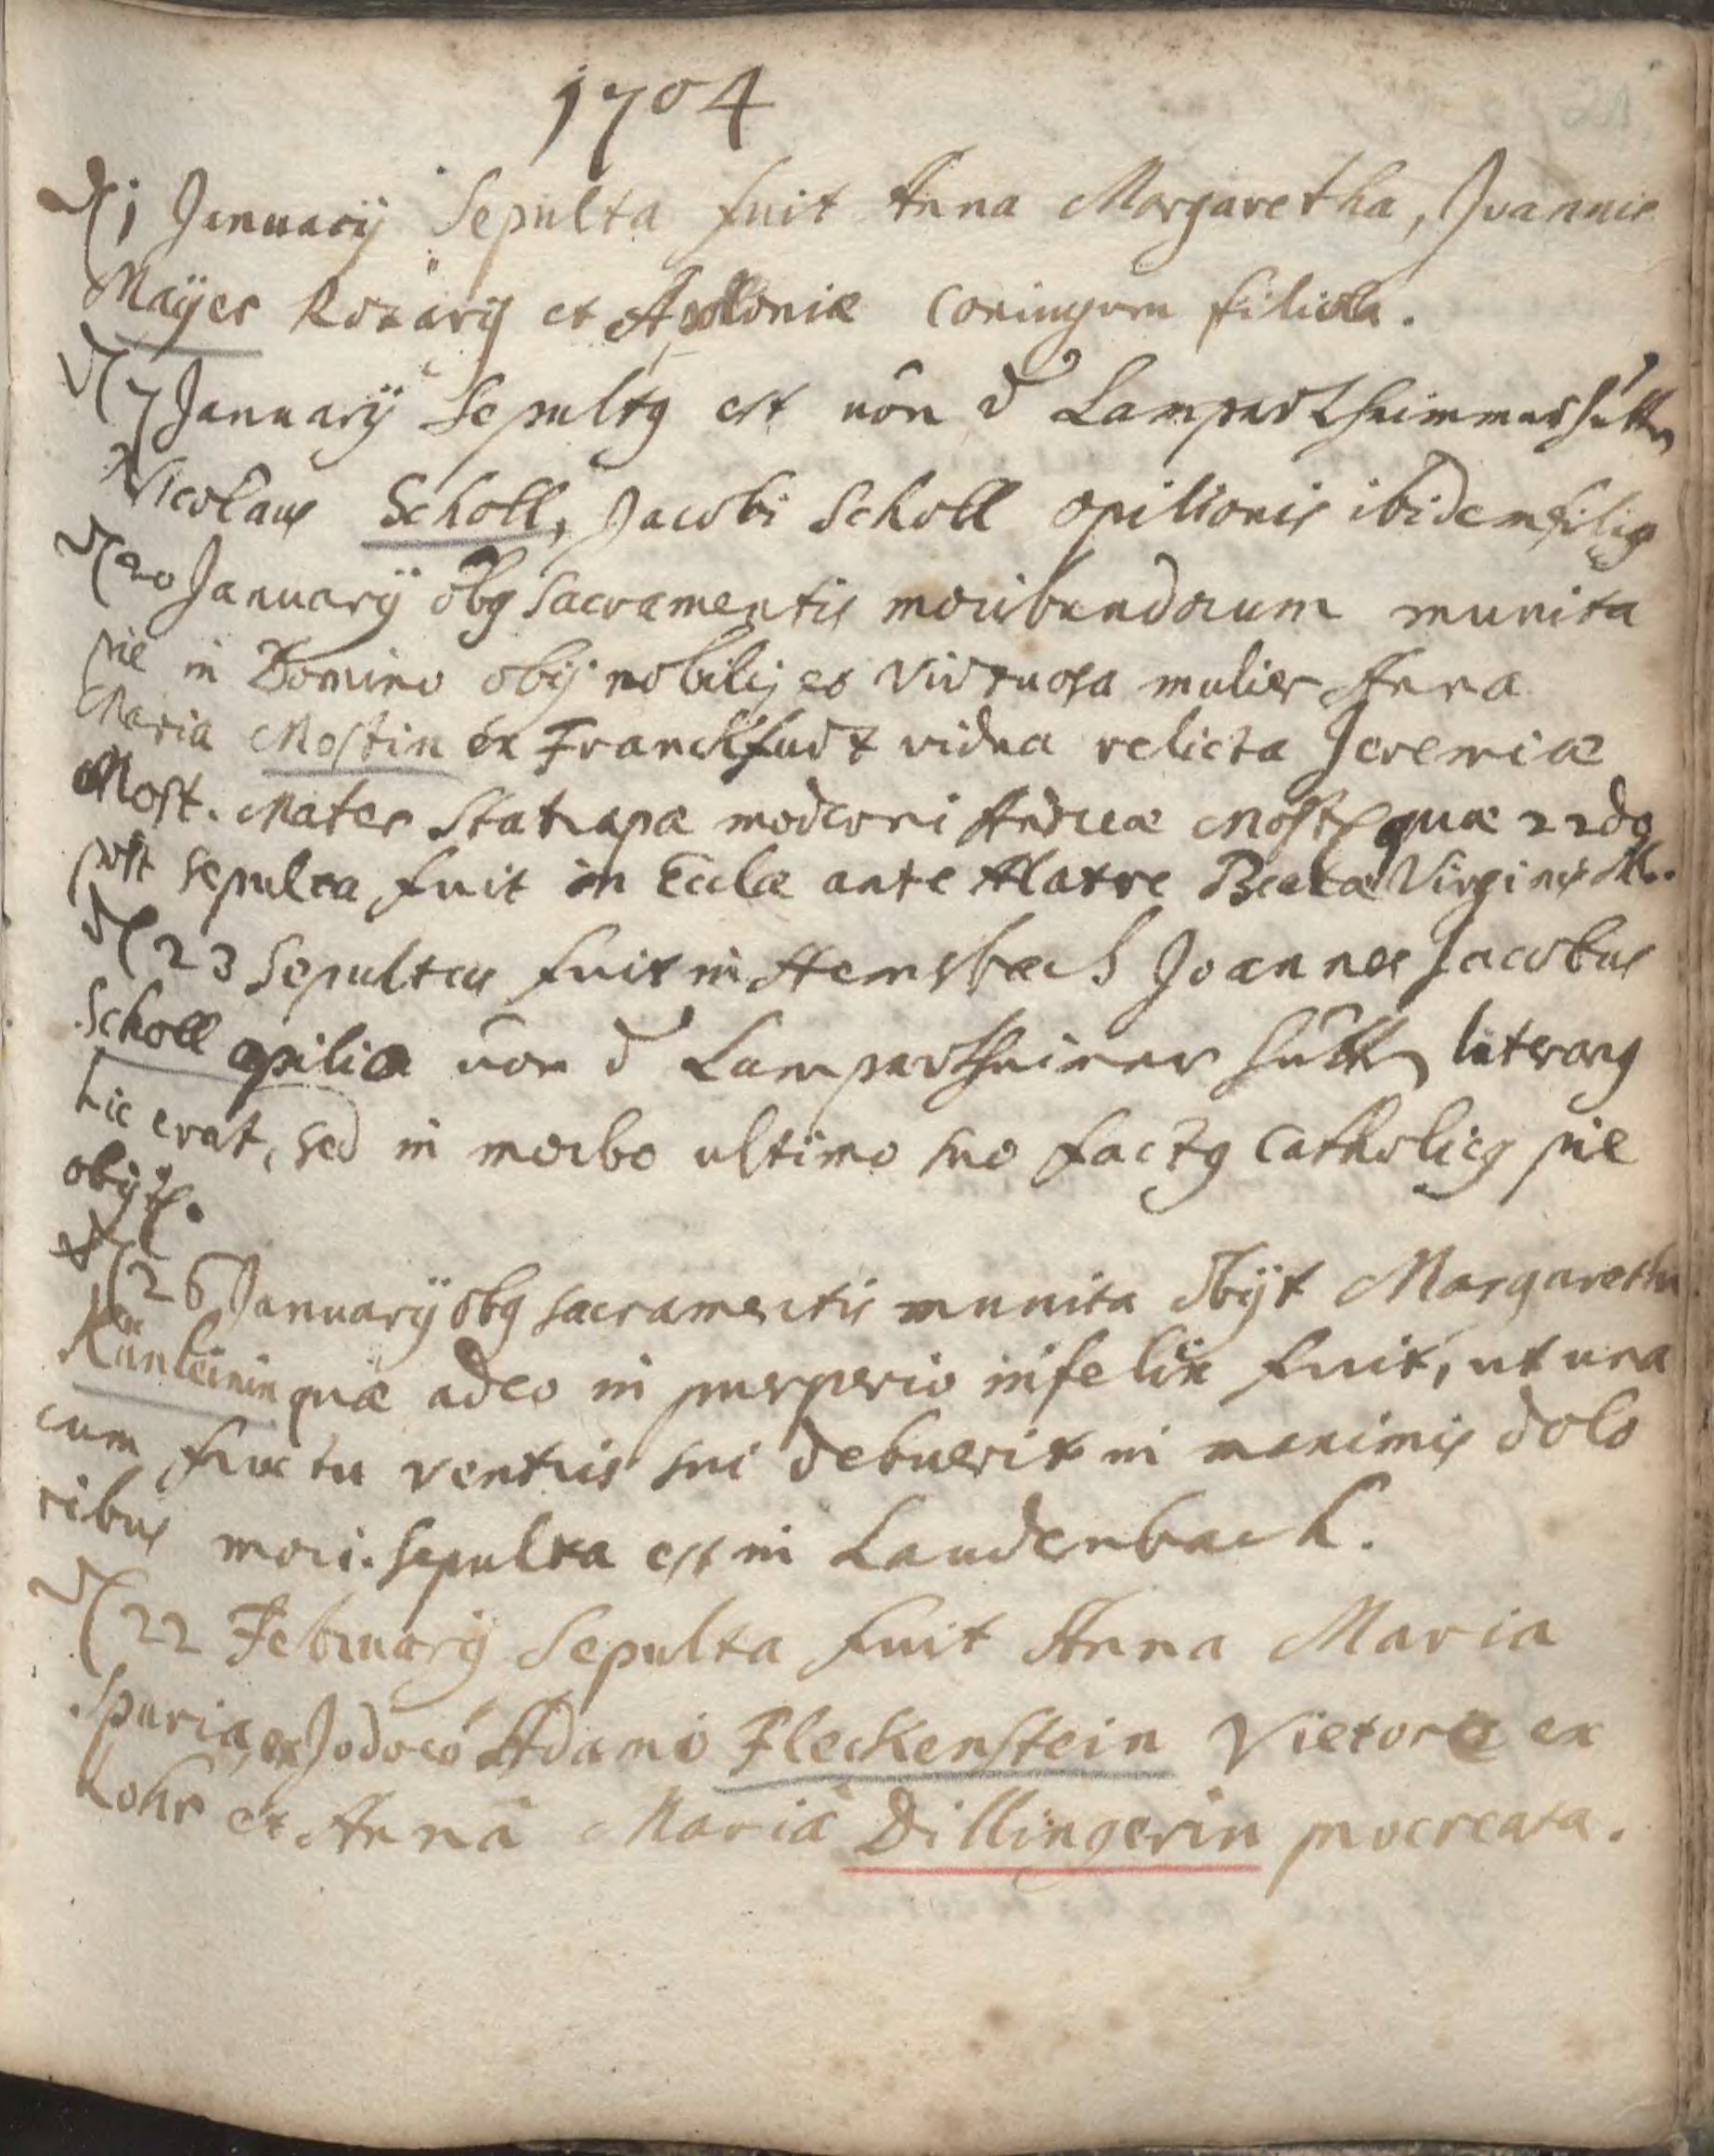 1704
d 1 Januarij Sepulta fuit Anna Margaretha, Joannis
Maÿer Rotarij et Apolloniæ coniugum filiola.
d 7 Januarij Sepultg est von d Lampertheimmer hütten
Nicolaus Scholl, Jacobi Scholl opilionis ibidem filig
d 20 Januarÿ obg Sacramentis moribundorum munita
pie in Domino obij nobilis et virtuosa mulier Anna
Maria Mostin ex Franckfurt vidua relicta Jeremiæ
Most. Mater Statrapæ moderni Andreæ Most quæ 22do
post sepulta fuit in Eccla ante Altare Beatæ Virginis M.
d 23 Sepultus fuit in Hemsbach Joannes Jacobus
Scholl opilio von d Lampertheimer hütten luterang
hic erat, sed in morbo ultimo suo factg catholicg pie
obijt.
d 26 Januarÿ obg sacramentis munita obijt Margaretha
quæ adeo in puerperio infelix fuit, ut una
cum fructu ventris sui debuerit in maximis dolo
ribus mori. sepulta est in Laudenbach.
d 22 Februarij Sepulta fuit Anna Maria
spuria, ex Jodoco Adamo Fleckenstein Vietore ex
Lohr et Annâ Mariâ Dillingerin procreata.